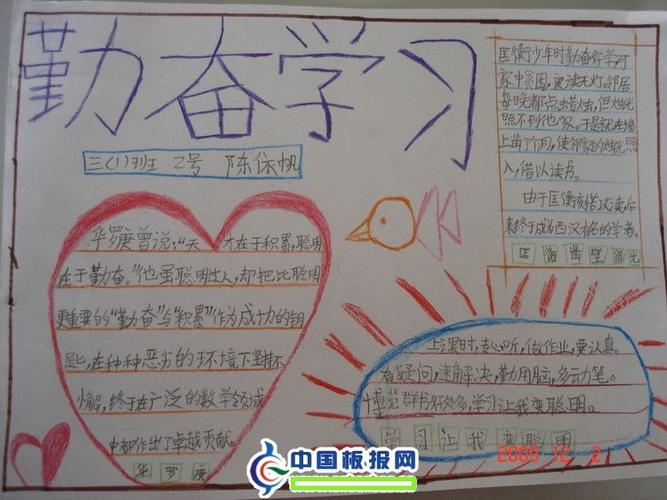 勤奋学习
三(1)班 2号 陈依帆
华罗庚曾说:“天才在于积累,聪明
在于勤奋。”他虽聪明过人,却把比聪明
更重要的“勤奋”与“积累”作为成功的钥
匙,在种种恶劣的环境下坚持不
懈,终于在广泛的数学领域
中都作出了卓越贡献。
华罗庚
匡衡少年时勤奋好学可
家中贫困,夜读无灯,邻居
每晚都点蜡烛,但烛光
照不到他家,于是就在墙
上凿了个洞,使邻家的烛光照
入,借以读书。
由于匡衡刻苦读书后
来终于成为西汉有名的学者。
匡衡凿壁借光
上课时,专心听,做作业,要认真。
有疑问,速解决,勤用脑,多动笔。
博览群书好处多,学习让我变聪明。
学习让我变聪明
2009 12 2
中国板报网